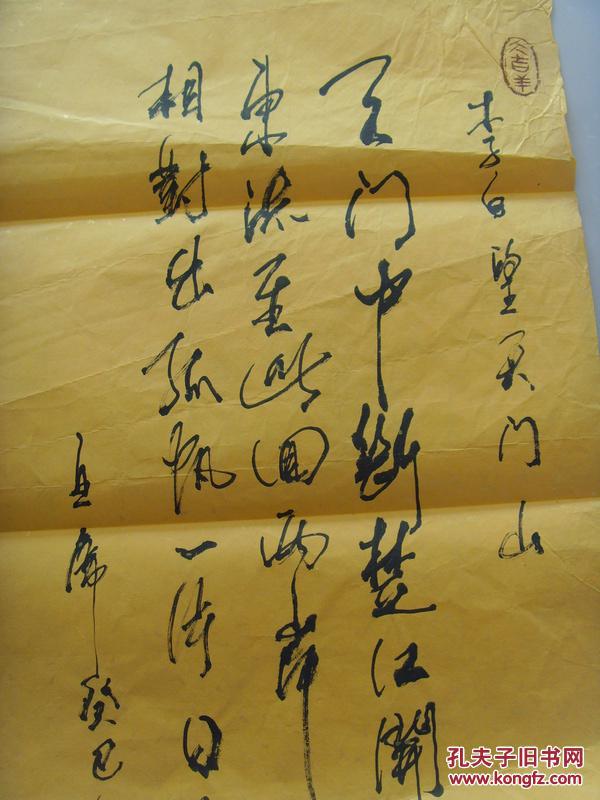 大吉羊
李白望天门山
天门中斷楚江開
東流至此回两岸
相對出孤帆一片日
癸巳
孔夫子旧书网
www.kongfz.com